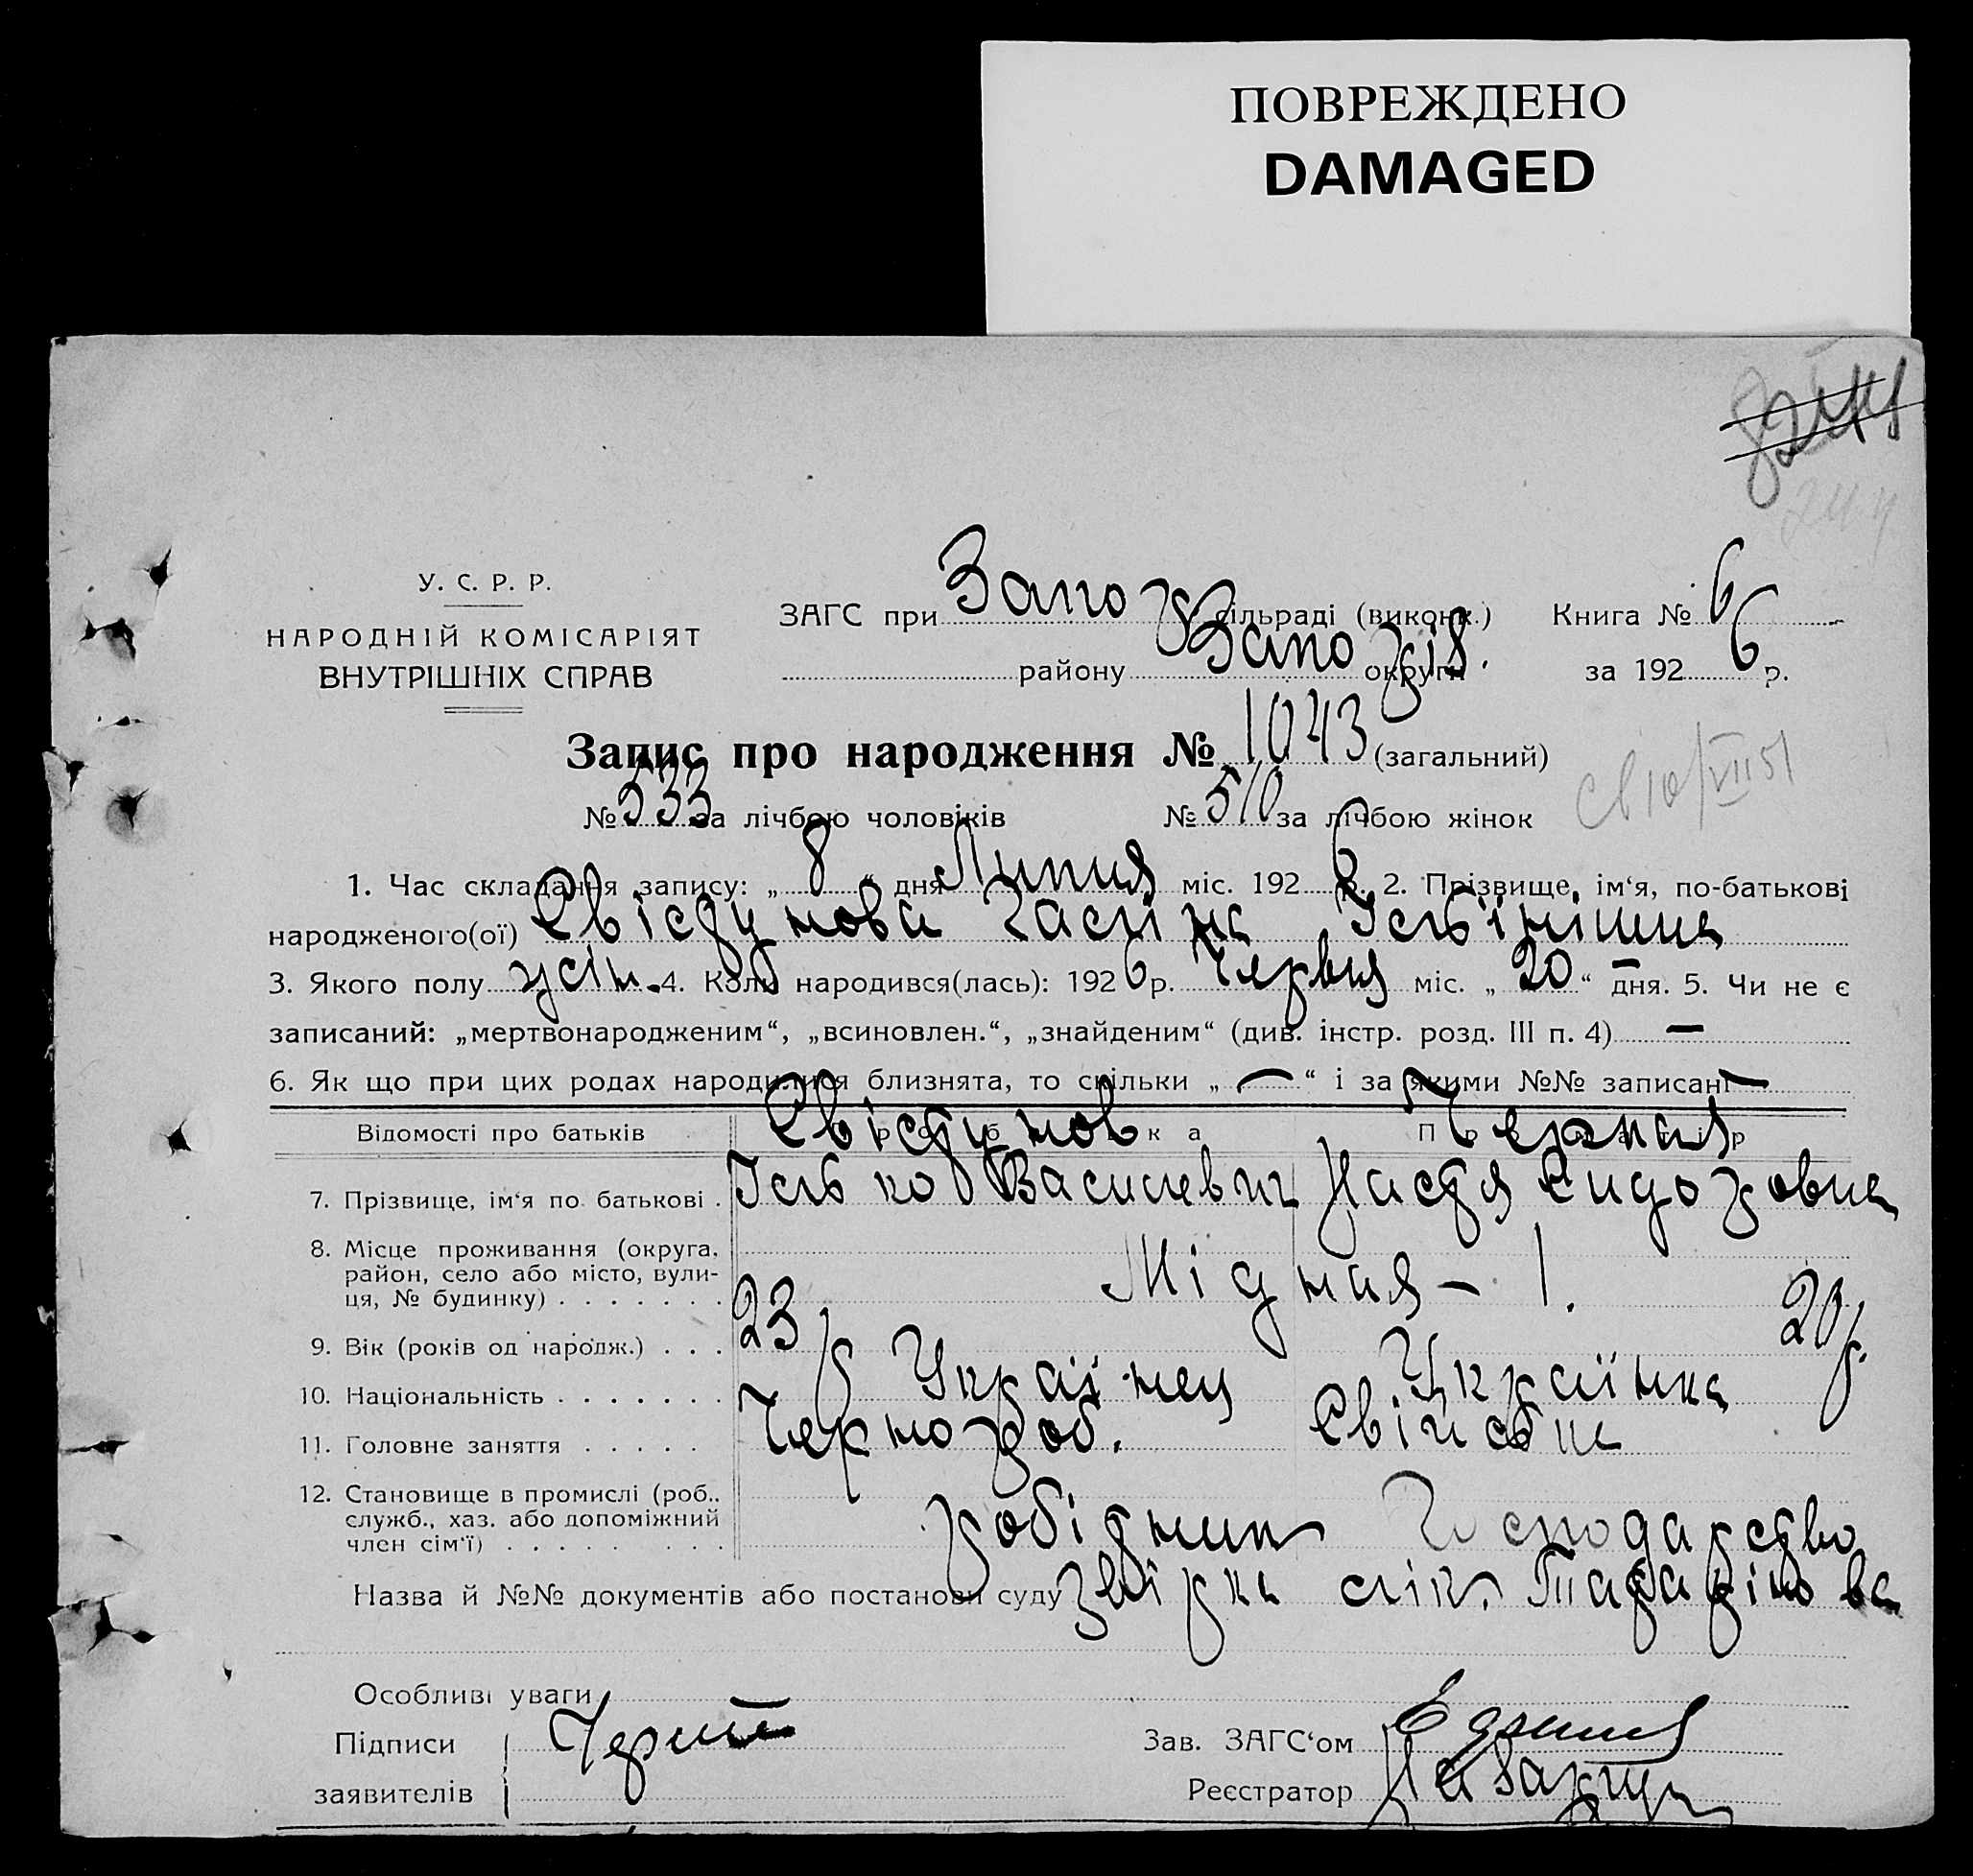 ПОВРЕЖДЕНО
DAMAGED
У. С. Р. Р.
НАРОДНІЙ КОМІСАРІЯТ
ВНУТРІШНІХ СПРАВ
ЗАГС при Запор сільраді (виконк.) Книга № 6
району Запоріз. округи за 1926 р.
Запис про народження № 1043 (загальний)
№ 533 за лічбою чоловіків № 510 за лічбою жінок
1. Час складання запису: „8“ дня Липня міс. 1926 р. 2. Прізвище, ім‘я, по-батькові
народженого(ої) Свістунова
3. Якого полу жін. 4. Коли народився(лась): 1926 р. Червня міс. „20“ дня. 5. Чи не є
записаний: „мертвонародженим“, „всиновлен.“, „знайденим“ (див. інстр. розд. III п. 4) —
6. Як що при цих родах народилися близнята, то скільки „—“ і за якими №№ записані —
Відомості про батьків Свістунов
7. Прізвище, ім‘я по батькові . Ісько Василевич Настя Сидоровна
8. Місце проживання (округа,
район, село або місто, вули-
ця, № будинку) . . . . . . . Мідная – 1.
9. Вік (років од народж.) . . . 23 р 20 р.
10. Національність . . . . . . . Українец Українка
11. Головне заняття . . . . . Чернороб. Свійська
12. Становище в промислі (роб.,
служб., хаз. або допоміжний
член сім‘ї) . . . . . . . . робідник Господарство
Назва й №№ документів або постанови суду
Особливі уваги
Підписи
заявителів
Зав. ЗАГС‘ом
Реєстратор